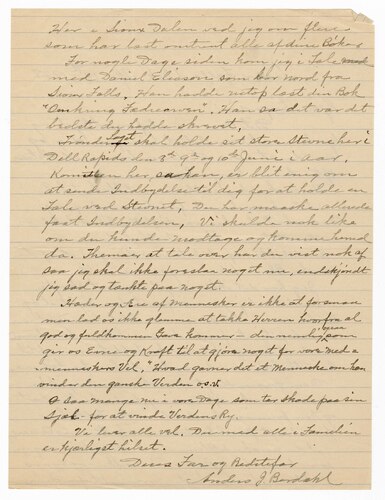 Her i Sioux Dalen ved jeg om flere
som har læst omtrent alle af dine Bøker
For nogle Dage siden kom jeg i Tale med
med Daniel Eliason som bor Nord fra
Sioux Falls, Han hadde netop læst din Bok
Han sa det var det
bedste du hadde skrevet,
Trønder Laget skal holde sit store Stevne her i
Dell Rapids den 8th 9th og 10th Juni i aar,
Komiteen her, sa han, er blit enig om
at sende Indbydelse til dig for at holde en
Tale ved Stevnet, Du har maaske allerede
faat Indbydelsen, Vi skulde nok like
om du kunde modtage og komme hend
da. Themaer at tale over har du vist nok af
saa jeg skal ikke foreslaa noget nu, endskjøndt
jeg sad og tænkte paa noget.
Hæder og Ære af Mennesker er ikke at forsmaa
men lad os ikke glemme at takke Herren hvorfra al
god og fuldkommen Gave kommer – den
gir os Evne og Kraft til at gjøre noget for vore med =
menneskers Vel, "Hvad gavner det et Menneske om han
vinder den ganske Verden o.s.v.
O saa mange nu i vore Dage som tar Skade paa sin
Sjæl – for at vinde Verdens Ry.
Vi lever alle vel. Du med alle i Familien
er kjærligst hilset.
Deres Far og Bedstefar
Anders J. Bordahl